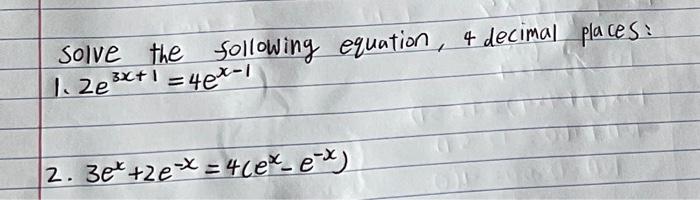 solve the following equation, 4 decimal places:
1. 2e^{3x+1} = 4e^{x-1}
2. 3e^{x} + 2e^{-x} = 4(e^{x} - e^{-x})